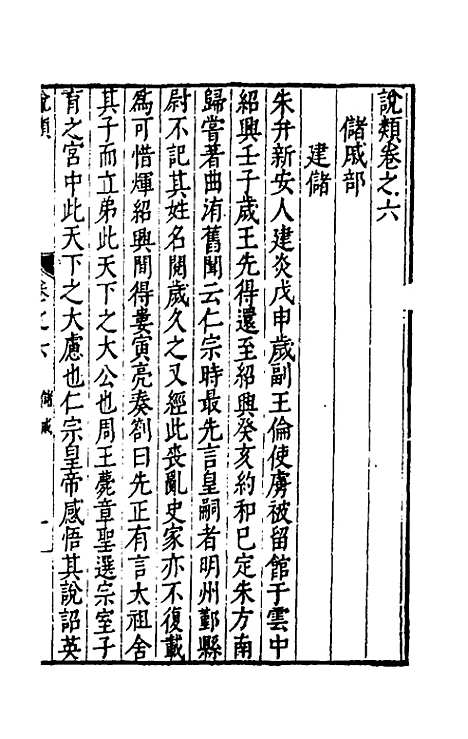 說類卷之六
儲戚部
建儲
朱弁新安人建炎戊申歲副王倫使虜被留館于雲中
紹興壬子歲王先得還至紹興癸亥約和已定朱方南
歸嘗著曲洧舊聞云仁宗時最先言皇嗣者明州鄞縣
尉不記其姓名閱歲久之又經此喪亂史家亦不復載
爲可惜煇紹興間得婁寅亮奏劄曰先正有言太祖舍
其子而立弟此天下之大公也周王薨章聖選宗室子
育之宮中此天下之大慮也仁宗皇帝感悟其說詔英
說類
卷之六
儲戚
一